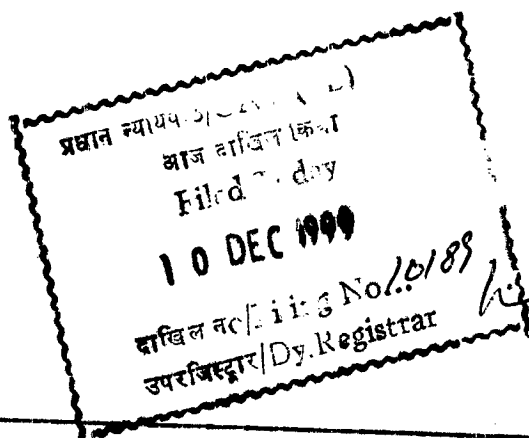 प्रधान न्यायपीठ/
आज दाखिल किया
Filed Today
10 DEC 1999
दाखिल नं०/Filing No. 10189
उपरजिस्ट्रार/Dy.Registrar